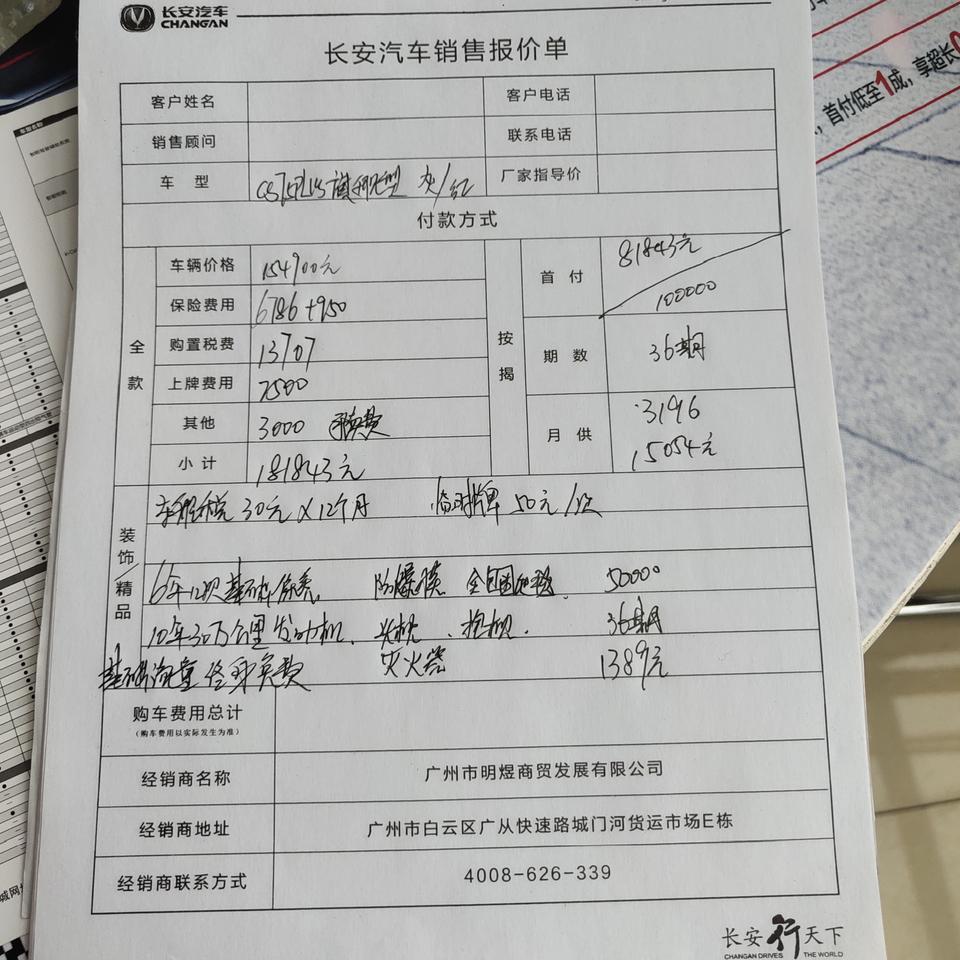 长安汽车
CHANGAN
首付低至1成,享超长0
长安汽车销售报价单
客户姓名 客户电话
销售顾问 联系电话
车 型 CS75PLUS 旗舰型 灰/红 厂家指导价
付款方式
全款 按揭
车辆价格 154900元
保险费用 6786+950
购置税费 13707
上牌费用 2500
其他 3000
小计 181843元
首 付 81843元 / 100000
期 数 36期
月 供 3196
15054元
装饰/精品
车船税 30元×12个月 临时牌 50元/次
6年 基础保养 防爆膜 全国 50000
10年30万公里发动机、头枕、抱枕. 36期
基础流量终身免费 灭火器 1389元
购车费用总计
(购车费用以实际发生为准)
经销商名称 广州市明煜商贸发展有限公司
经销商地址 广州市白云区广从快速路城门河货运市场E栋
经销商联系方式 4008-626-339
长安行天下
CHANGAN DRIVES THE WORLD